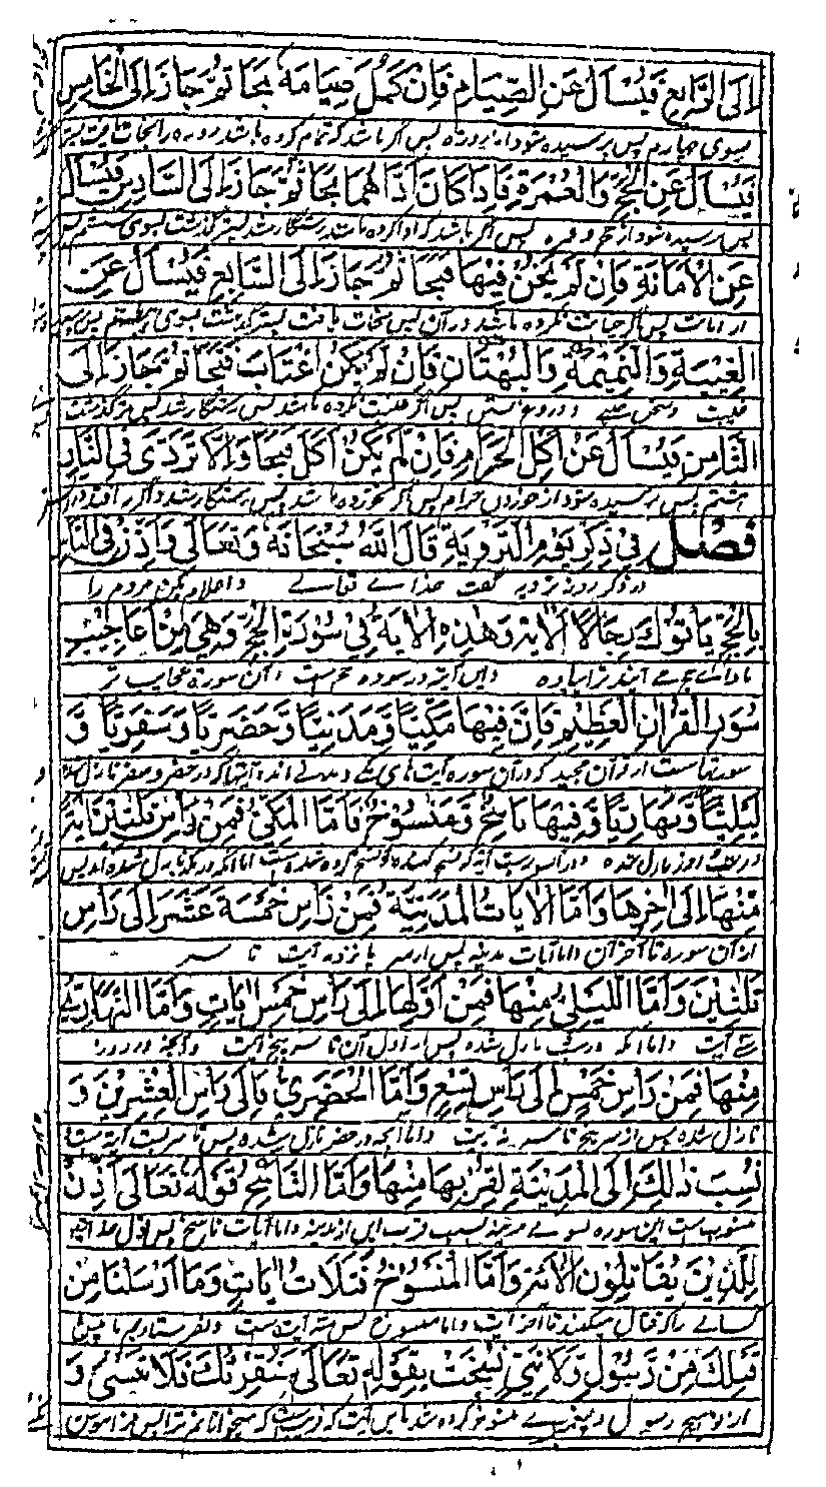 اِلَى الرَّابِعِ فَيُسْأَلُ عَنِ الصِّيَامِ فَاِنْ كَمُلَ صِيَامَهٗ نَجَا ثُمَّ جَازَ اِلَى الْخَامِسِ
بسوی چهارم پس پرسیده شود از روزه پس اگر باشد که تمام کرده باشد روزه را نجات یافت
فَيُسْأَلُ عَنِ الْحَجِّ وَالْعُمْرَةِ فَاِذَا كَانَ اَدَّاهُمَا نَجَا ثُمَّ جَازَ اِلَى السَّادِسِ فَيُسْأَلُ
پس پرسیده شود از حج و عمره پس اگر باشد که ادا کرده باشد رستگار شد پستر گذشت بسوی ششم
عَنِ الْاَمَانَةِ فَاِنْ لَمْ يَخُنْ فِيْهَا نَجَا ثُمَّ جَازَ اِلَى السَّابِعِ فَيُسْأَلُ عَنِ
از امانت پس اگر خیانت نکرده باشد در آن پس نجات یافت پستر گذشت بسوی هفتم
الْغِيْبَةِ وَالنَّمِيْمَةِ وَالْبُهْتَانِ فَاِنْ لَمْ يَكُنِ اغْتَابَ نَجَا ثُمَّ جَازَ اِلَى
غیبت و سخن چینی و دروغ بستن پس اگر غیبت نکرده باشد پس رستگار شد پستر گذشت
الثَّامِنِ فَيُسْأَلُ عَنْ اَكْلِ الْحَرَامِ فَاِنْ لَمْ يَكُنْ اَكَلَ نَجَا وَاِلَّا تَرَدّٰى فِى النَّارِ
هشتم پس پرسیده شود از خوردن حرام پس اگر نخورده باشد پس رستگار شد و اگر نه افتد در
فَصْلٌ فِيْ ذِكْرِ يَوْمِ التَّرْوِيَةِ قَالَ اللّٰهُ سُبْحَانَهٗ وَتَعَالٰى وَاَذِّنْ فِى النَّاسِ
در ذکر روز ترویه گفت خدای تعالی و اعلام بکن مردم را
بِالْحَجِّ يَاْتُوْكَ رِجَالًا الْاٰيَةَ وَهٰذِهِ الْاٰيَةُ فِيْ سُوْرَةِ الْحَجِّ وَهِيَ مِنْ اَعَاجِيْبِ
بادای حج می آیند ترا پیاده و این آیه در سوره حج است و آن سوره عجایب تر
سُوَرِ الْقُرْاٰنِ الْعَظِيْمِ فَاِنَّ فِيْهَا مَكِّيًّا وَّمَدَنِيًّا وَّحَضَرِيًّا وَّسَفَرِيًّا وَّ
سورتهاست از قرآن مجید که در آن سوره آیت های مکی و مدنی اند و آیتها که در حضر و سفر نازل
لَيْلِيًّا وَّنَهَارِيًّا وَّفِيْهَا نَاسِخٌ وَّمَنْسُوْخٌ فَاَمَّا الْمَكِّيُّ فَمِنْ رَّاْسِ ثَلٰثِيْنَ
در شب و روز نازل شده و در آن سوره آیت که نسخ کننده و نسخ کرده شده است اما آنکه در مکه نازل شده
مِنْهَا اِلٰى اٰخِرِهَا وَاَمَّا الْاٰيَاتُ الْمَدَنِيَّةُ فَمِنْ رَّاْسِ خَمْسَةَ عَشَرَ اِلٰى رَاْسِ
از آن سوره تا آخر آن و اما آیات مدینه پس از سر پانزده آیت تا سر
ثَلٰثِيْنَ وَاَمَّا اللَّيْلِيُّ مِنْهَا فَمِنْ اَوَّلِهَا اِلٰى رَاْسِ خَمْسِ اٰيَاتٍ وَاَمَّا النَّهَارِيُّ
سی آیت و اما آنکه در شب نازل شده پس از اول آن تا سر پنج آیت و آنچه در روز
مِنْهَا فَمِنْ رَّاْسِ خَمْسٍ اِلٰى رَاْسِ تِسْعٍ وَاَمَّا الْحَضَرِيُّ فَاِلٰى رَاْسِ الْعِشْرِيْنَ وَ
نازل شده پس از سر پنج تا سر نه آیت و اما آنچه در حضر نازل شده پس تا سر بیست آیت است
نُسِبَ ذٰلِكَ اِلَى الْمَدِيْنَةِ لِقُرْبِهَا مِنْهَا وَاَمَّا النَّاسِخُ فَقَوْلُهٗ تَعَالٰى اُذِنَ
منسوب است این سوره بسوی مدینه بسبب قرب این از مدینه و اما آیات ناسخ پس قول خدا
لِلَّذِيْنَ يُقَاتَلُوْنَ الْاٰيَةَ وَاَمَّا الْمَنْسُوْخُ فَثَلَاثُ اٰيَاتٍ وَمَا اَرْسَلْنَا مِنْ
کسانی را که قتال میکنند تا آخر آیت و اما منسوخ پس سه آیت است و نفرستادیم ما پیش
قَبْلِكَ مِنْ رَّسُوْلٍ وَّلَا نَبِيٍّ نُسِخَتْ بِقَوْلِهٖ تَعَالٰى سَنُقْرِئُكَ فَلَا تَنْسٰى وَ
از تو هیچ رسول و پیغمبری منسوخ کرده شد باین آیت که